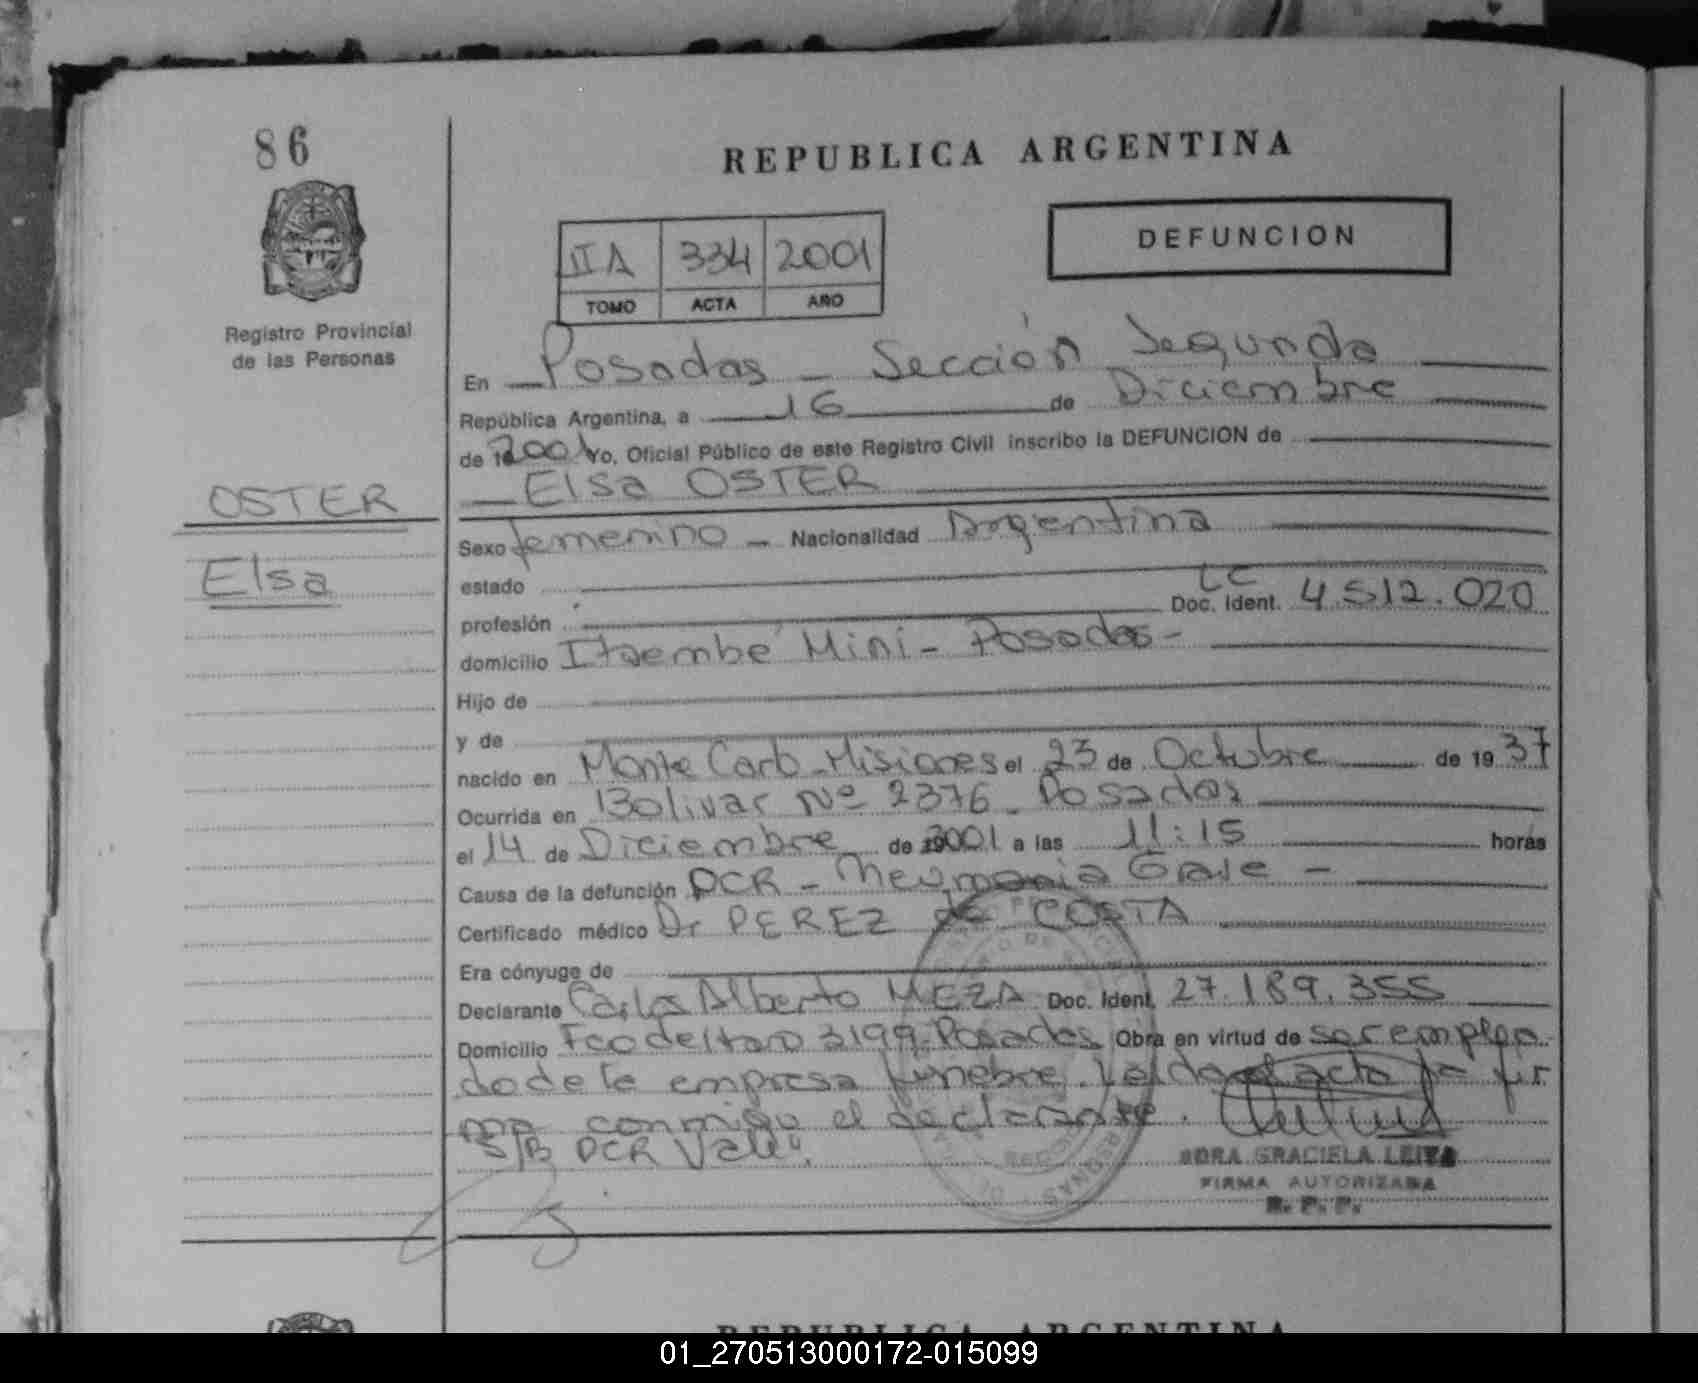 86
REPUBLICA ARGENTINA
DEFUNCION
IIA 334 2001
TOMO ACTA AÑO
Registro Provincial
de las Personas
En Posadas - Sección Segunda
República Argentina, a 16 de Diciembre
de 2001 Yo, Oficial Público de este Registro Civil inscribo la DEFUNCION de
Elsa OSTER
OSTER
Elsa
Sexo femenino - Nacionalidad Argentina
estado
LC
profesión Doc. Ident. 4.512.020
domicilio Itaembé Miní - Posadas -
Hijo de
y de
nacido en Monte Carlo - Misiones el 23 de Octubre de 1937
Ocurrida en Bolivar Nº 2376 - Posadas
el 14 de Diciembre de 2001 a las 11:15 horas
Causa de la defunción PCR - Neumonia Grave -
Certificado médico Dr PEREZ de COSTA
Era cónyuge de
Declarante Carlos Alberto MEZA Doc. Ident. 27.189.355
Domicilio Fco de Haro 3199 - Posadas Obra en virtud de ser emplea
do de la empresa funebre. Leida el acta la fir
ma conmigo el declarante.
S/B PCR Vale.
GRACIELA
FIRMA AUTORIZADA
R. P. P.
REPUBLICA ARGENTINA
01_270513000172-015099